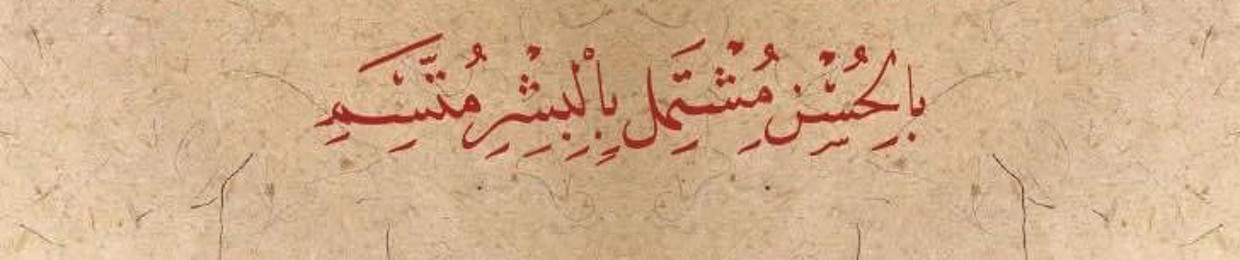 بِالْحُسْنِ مُشْتَمِلٍ بِالْبِشْرِ مُتَّسِمِ